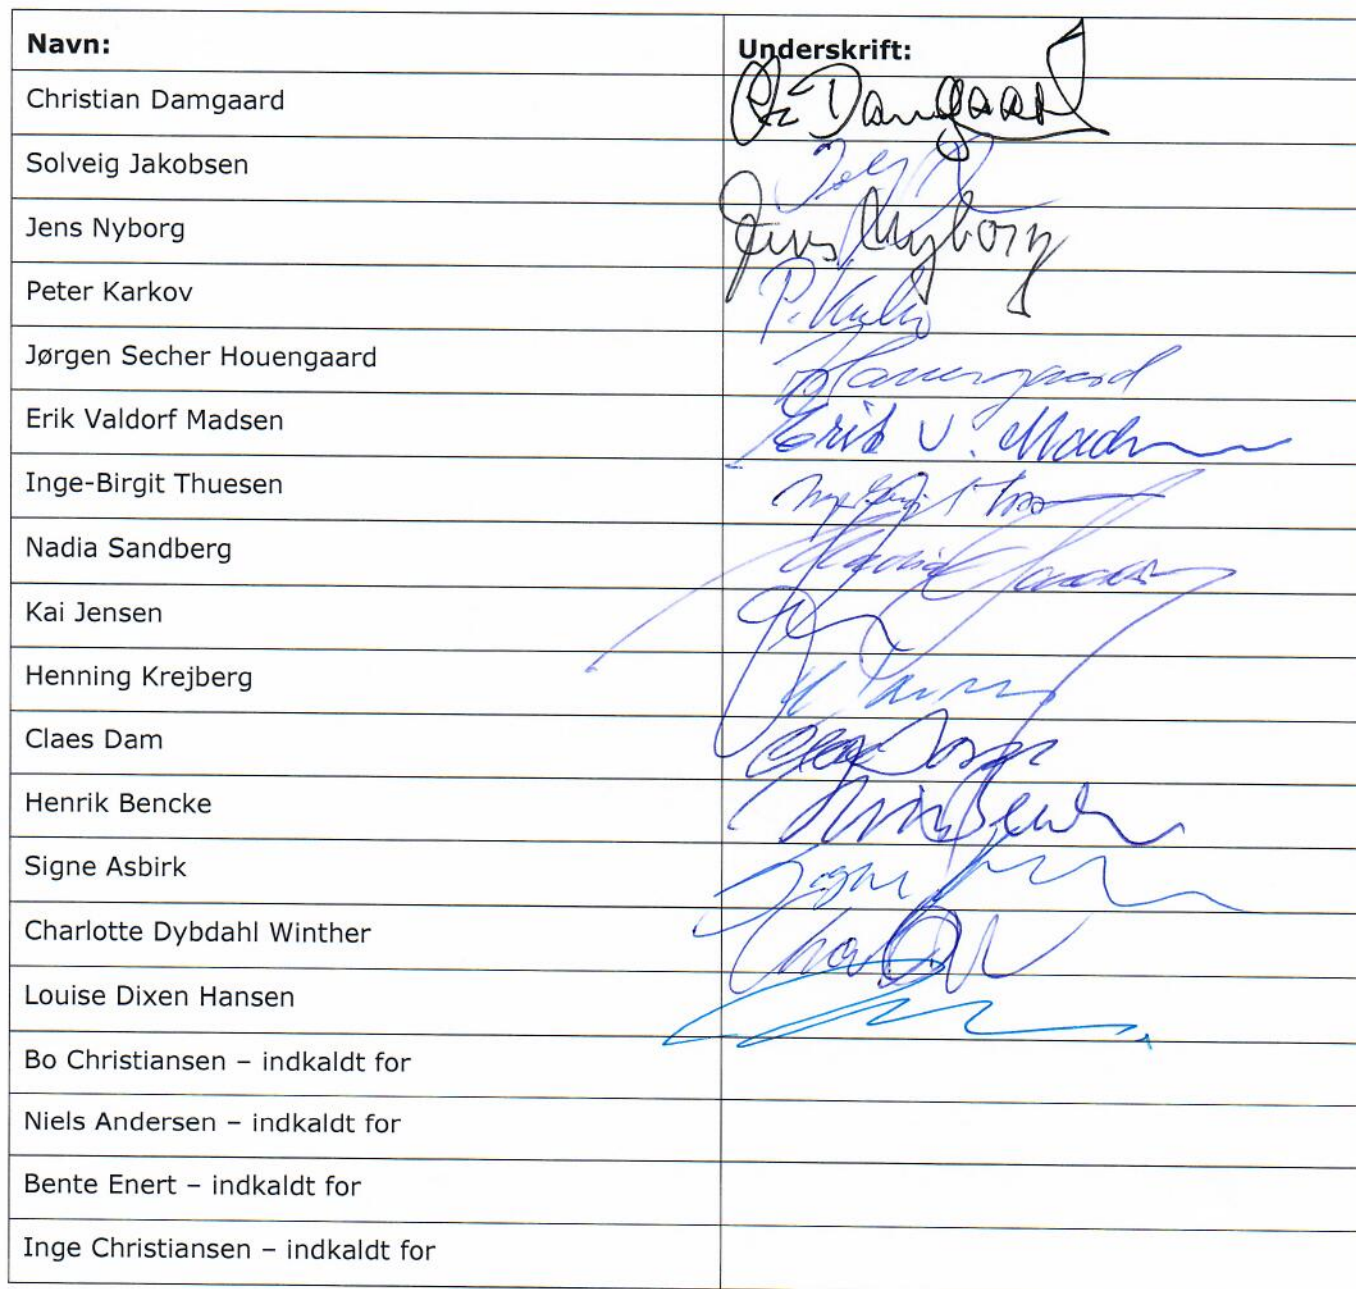 Navn: Underskrift:
Christian Damgaard Chr Damgaard
Solveig Jakobsen
Jens Nyborg Jens Nyborg
Peter Karkov P.
Jørgen Secher Houengaard Houengaard
Erik Valdorf Madsen Erik V. Madsen
Inge-Birgit Thuesen
Nadia Sandberg Nadia
Kai Jensen
Henning Krejberg
Claes Dam Claes Dam
Henrik Bencke Henrik Bencke
Signe Asbirk Signe
Charlotte Dybdahl Winther
Louise Dixen Hansen
Bo Christiansen – indkaldt for
Niels Andersen – indkaldt for
Bente Enert – indkaldt for
Inge Christiansen – indkaldt for